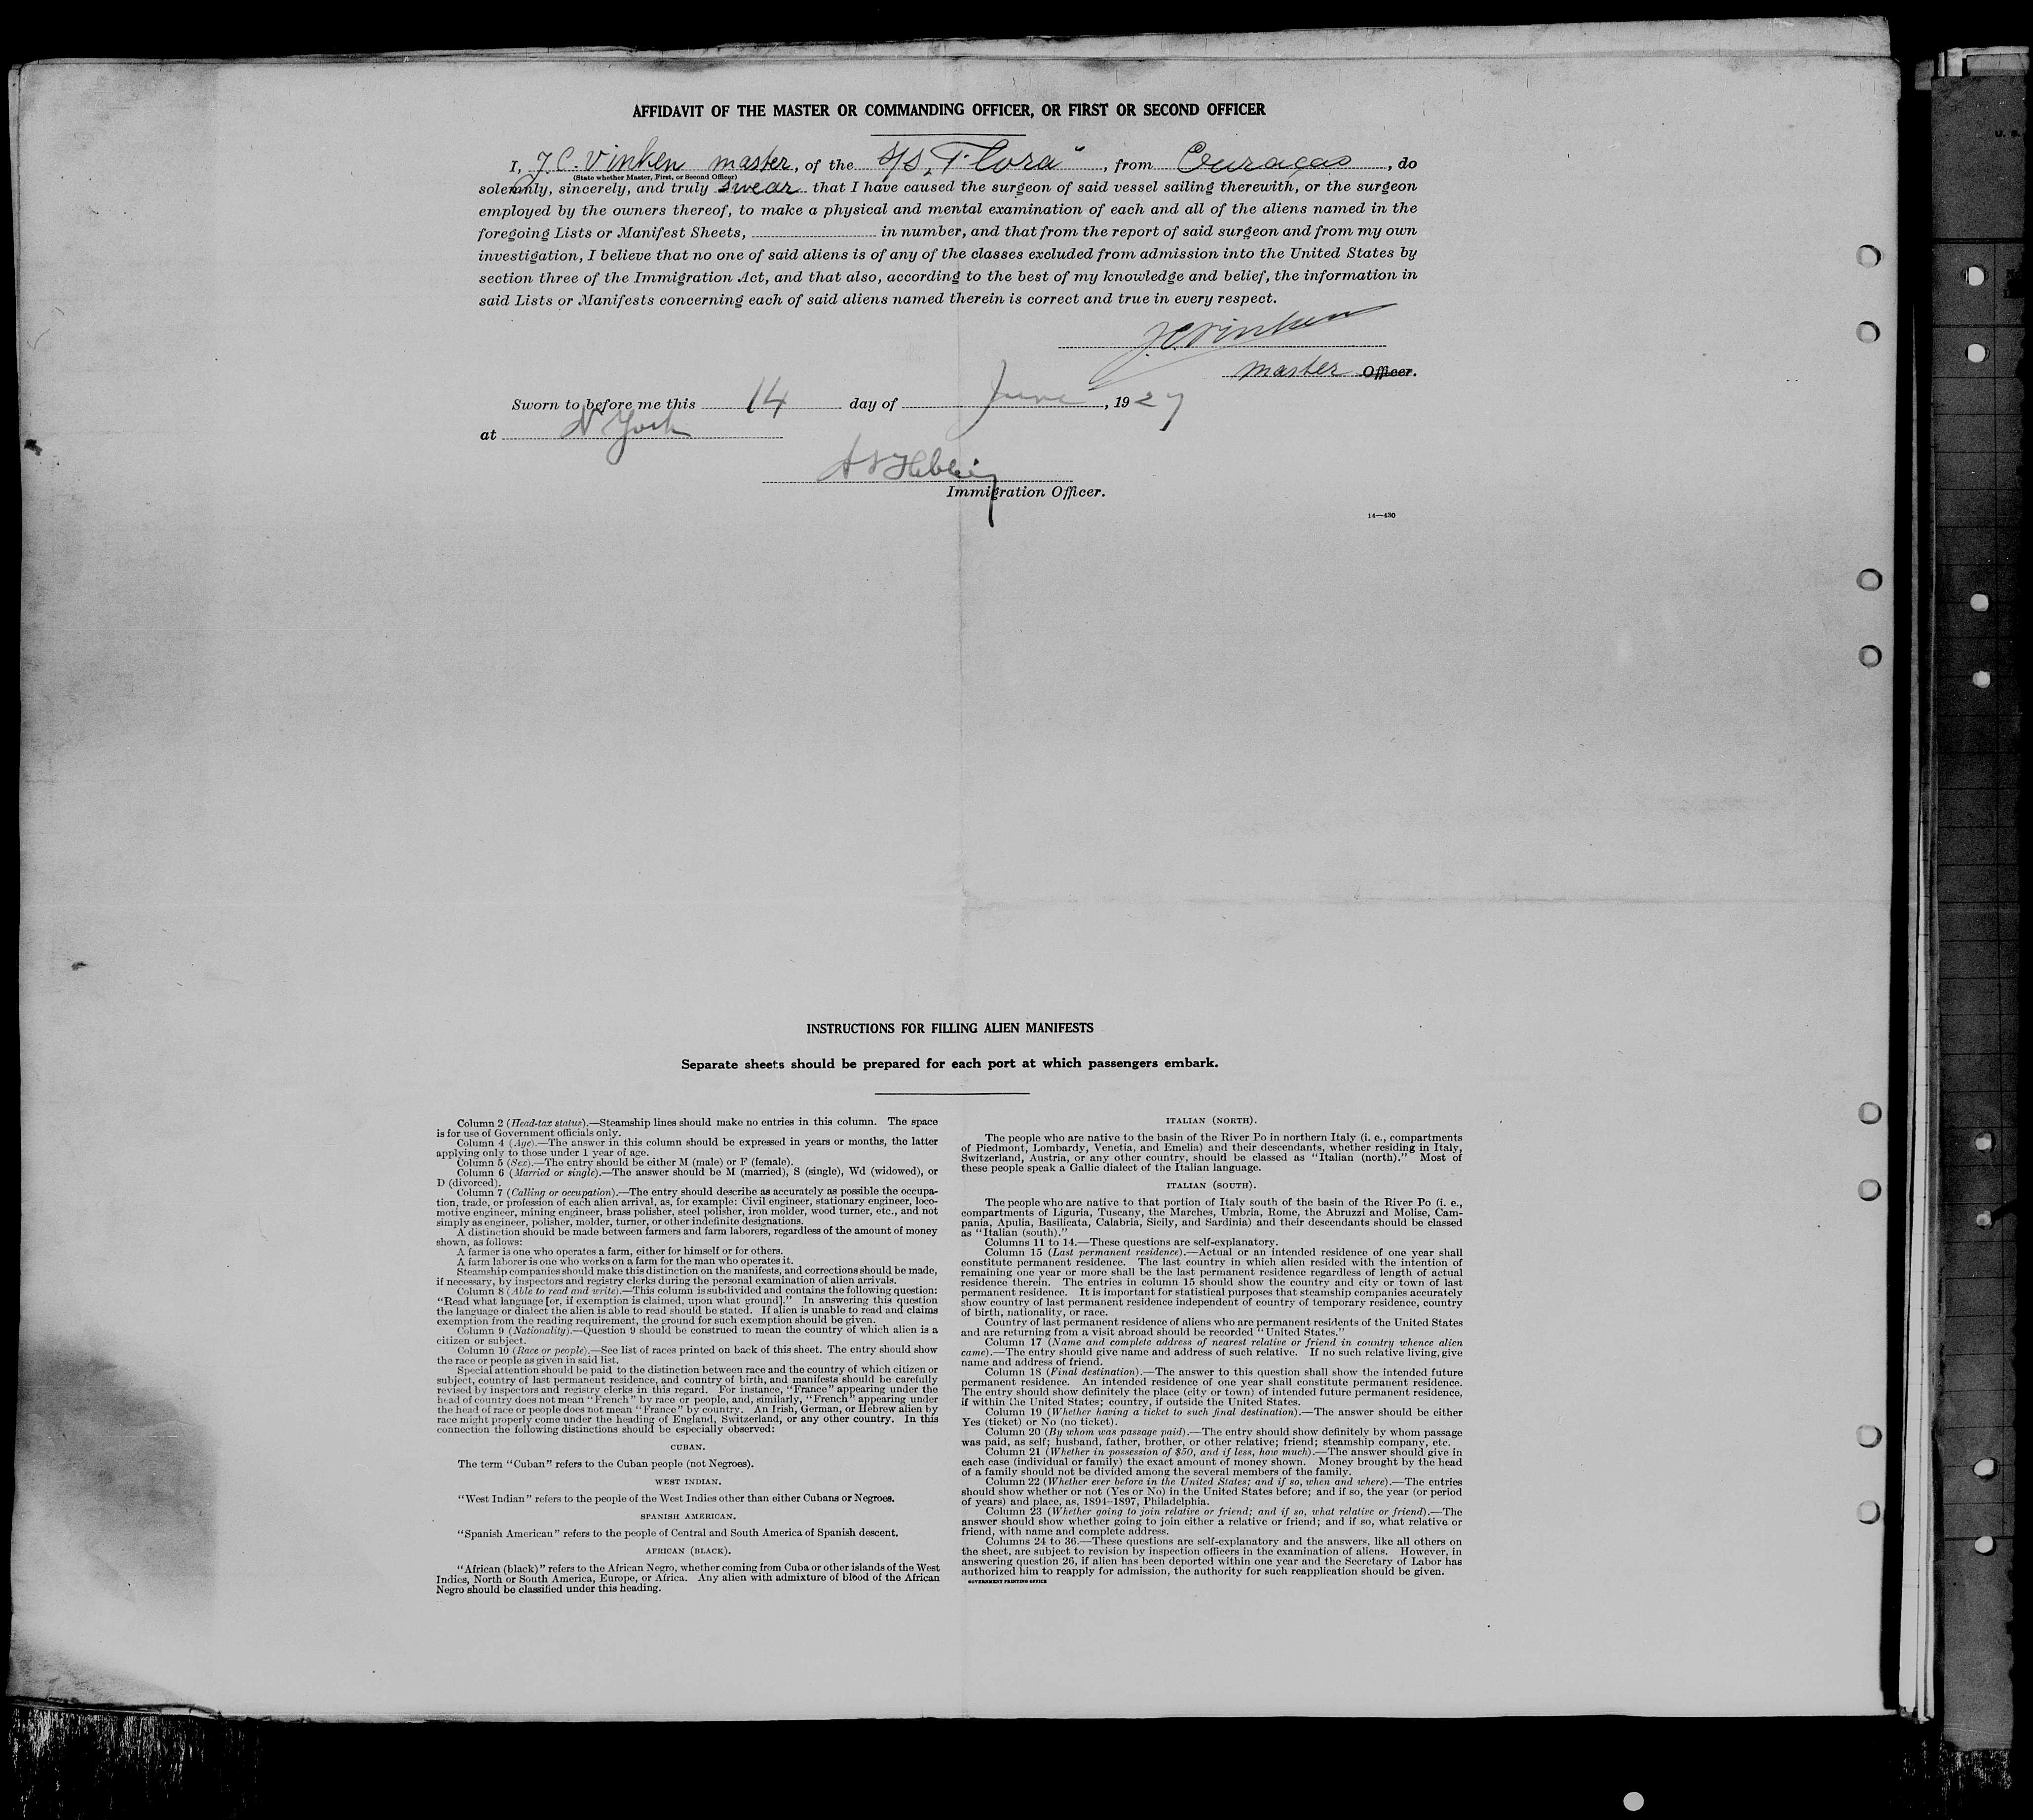 AFFIDAVIT OF THE MASTER OR COMMANDING OFFICER, OR FIRST OR SECOND OFFICER
I, J.C. Vinken master, of the S/S „Flora", from Curaçao, do
(State whether Master, First, or Second Officer)
solemnly, sincerely, and truly swear that I have caused the surgeon of said vessel sailing therewith, or the surgeon
employed by the owners thereof, to make a physical and mental examination of each and all of the aliens named in the
foregoing Lists or Manifest Sheets, in number, and that from the report of said surgeon and from my own
investigation, I believe that no one of said aliens is of any of the classes excluded from admission into the United States by
section three of the Immigration Act, and that also, according to the best of my knowledge and belief, the information in
said Lists or Manifests concerning each of said aliens named therein is correct and true in every respect.
J.C. Vinken
master Officer.
Sworn to before me this 14 day of June, 1927
at N York
Immigration Officer.
14—430
INSTRUCTIONS FOR FILLING ALIEN MANIFESTS
Separate sheets should be prepared for each port at which passengers embark.
Column 2 (Head-tax status).—Steamship lines should make no entries in this column. The space
is for use of Government officials only.
Column 4 (Age).—The answer in this column should be expressed in years or months, the latter
applying only to those under 1 year of age.
Column 5 (Sex).—The entry should be either M (male) or F (female).
Column 6 (Married or single).—The answer should be M (married), S (single), Wd (widowed), or
D (divorced).
Column 7 (Calling or occupation).—The entry should describe as accurately as possible the occupa-
tion, trade, or profession of each alien arrival, as, for example: Civil engineer, stationary engineer, loco-
motive engineer, mining engineer, brass polisher, steel polisher, iron molder, wood turner, etc., and not
simply as engineer, polisher, molder, turner, or other indefinite designations.
A distinction should be made between farmers and farm laborers, regardless of the amount of money
shown, as follows:
A farmer is one who operates a farm, either for himself or for others.
A farm laborer is one who works on a farm for the man who operates it.
Steamship companies should make this distinction on the manifests, and corrections should be made,
if necessary, by inspectors and registry clerks during the personal examination of alien arrivals.
Column 8 (Able to read and write).—This column is subdivided and contains the following question:
"Read what language [or, if exemption is claimed, upon what ground]." In answering this question
the language or dialect the alien is able to read should be stated. If alien is unable to read and claims
exemption from the reading requirement, the ground for such exemption should be given.
Column 9 (Nationality).—Question 9 should be construed to mean the country of which alien is a
citizen or subject.
Column 10 (Race or people).—See list of races printed on back of this sheet. The entry should show
the race or people as given in said list.
Special attention should be paid to the distinction between race and the country of which citizen or
subject, country of last permanent residence, and country of birth, and manifests should be carefully
revised by inspectors and registry clerks in this regard. For instance, "France" appearing under the
head of country does not mean "French" by race or people, and, similarly, "French" appearing under
the head of race or people does not mean "France" by country. An Irish, German, or Hebrew alien by
race might properly come under the heading of England, Switzerland, or any other country. In this
connection the following distinctions should be especially observed:
CUBAN.
The term "Cuban" refers to the Cuban people (not Negroes).
WEST INDIAN.
"West Indian" refers to the people of the West Indies other than either Cubans or Negroes.
SPANISH AMERICAN.
"Spanish American" refers to the people of Central and South America of Spanish descent.
AFRICAN (BLACK).
"African (black)" refers to the African Negro, whether coming from Cuba or other islands of the West
Indies, North or South America, Europe, or Africa. Any alien with admixture of blood of the African
Negro should be classified under this heading.
ITALIAN (NORTH).
The people who are native to the basin of the River Po in northern Italy (i. e., compartments
of Piedmont, Lombardy, Venetia, and Emelia) and their descendants, whether residing in Italy,
Switzerland, Austria, or any other country, should be classed as "Italian (north)." Most of
these people speak a Gallic dialect of the Italian language.
ITALIAN (SOUTH).
The people who are native to that portion of Italy south of the basin of the River Po (i. e.,
compartments of Liguria, Tuscany, the Marches, Umbria, Rome, the Abruzzi and Molise, Cam-
pania, Apulia, Basilicata, Calabria, Sicily, and Sardinia) and their descendants should be classed
as "Italian (south)."
Columns 11 to 14.—These questions are self-explanatory.
Column 15 (Last permanent residence).—Actual or an intended residence of one year shall
constitute permanent residence. The last country in which alien resided with the intention of
remaining one year or more shall be the last permanent residence regardless of length of actual
residence therein. The entries in column 15 should show the country and city or town of last
permanent residence. It is important for statistical purposes that steamship companies accurately
show country of last permanent residence independent of country of temporary residence, country
of birth, nationality, or race.
Country of last permanent residence of aliens who are permanent residents of the United States
and are returning from a visit abroad should be recorded "United States."
Column 17 (Name and complete address of nearest relative or friend in country whence alien
came).—The entry should give name and address of such relative. If no such relative living, give
name and address of friend.
Column 18 (Final destination).—The answer to this question shall show the intended future
permanent residence. An intended residence of one year shall constitute permanent residence.
The entry should show definitely the place (city or town) of intended future permanent residence,
if within the United States; country, if outside the United States.
Column 19 (Whether having a ticket to such final destination).—The answer should be either
Yes (ticket) or No (no ticket).
Column 20 (By whom was passage paid).—The entry should show definitely by whom passage
was paid, as self; husband, father, brother, or other relative; friend; steamship company, etc.
Column 21 (Whether in possession of $50, and if less, how much).—The answer should give in
each case (individual or family) the exact amount of money shown. Money brought by the head
of a family should not be divided among the several members of the family.
Column 22 (Whether ever before in the United States; and if so, when and where).—The entries
should show whether or not (Yes or No) in the United States before; and if so, the year (or period
of years) and place, as, 1894–1897, Philadelphia.
Column 23 (Whether going to join relative or friend; and if so, what relative or friend).—The
answer should show whether going to join either a relative or friend; and if so, what relative or
friend, with name and complete address.
Columns 24 to 36.—These questions are self-explanatory and the answers, like all others on
the sheet, are subject to revision by inspection officers in the examination of aliens. However, in
answering question 26, if alien has been deported within one year and the Secretary of Labor has
authorized him to reapply for admission, the authority for such reapplication should be given.
GOVERNMENT PRINTING OFFICE